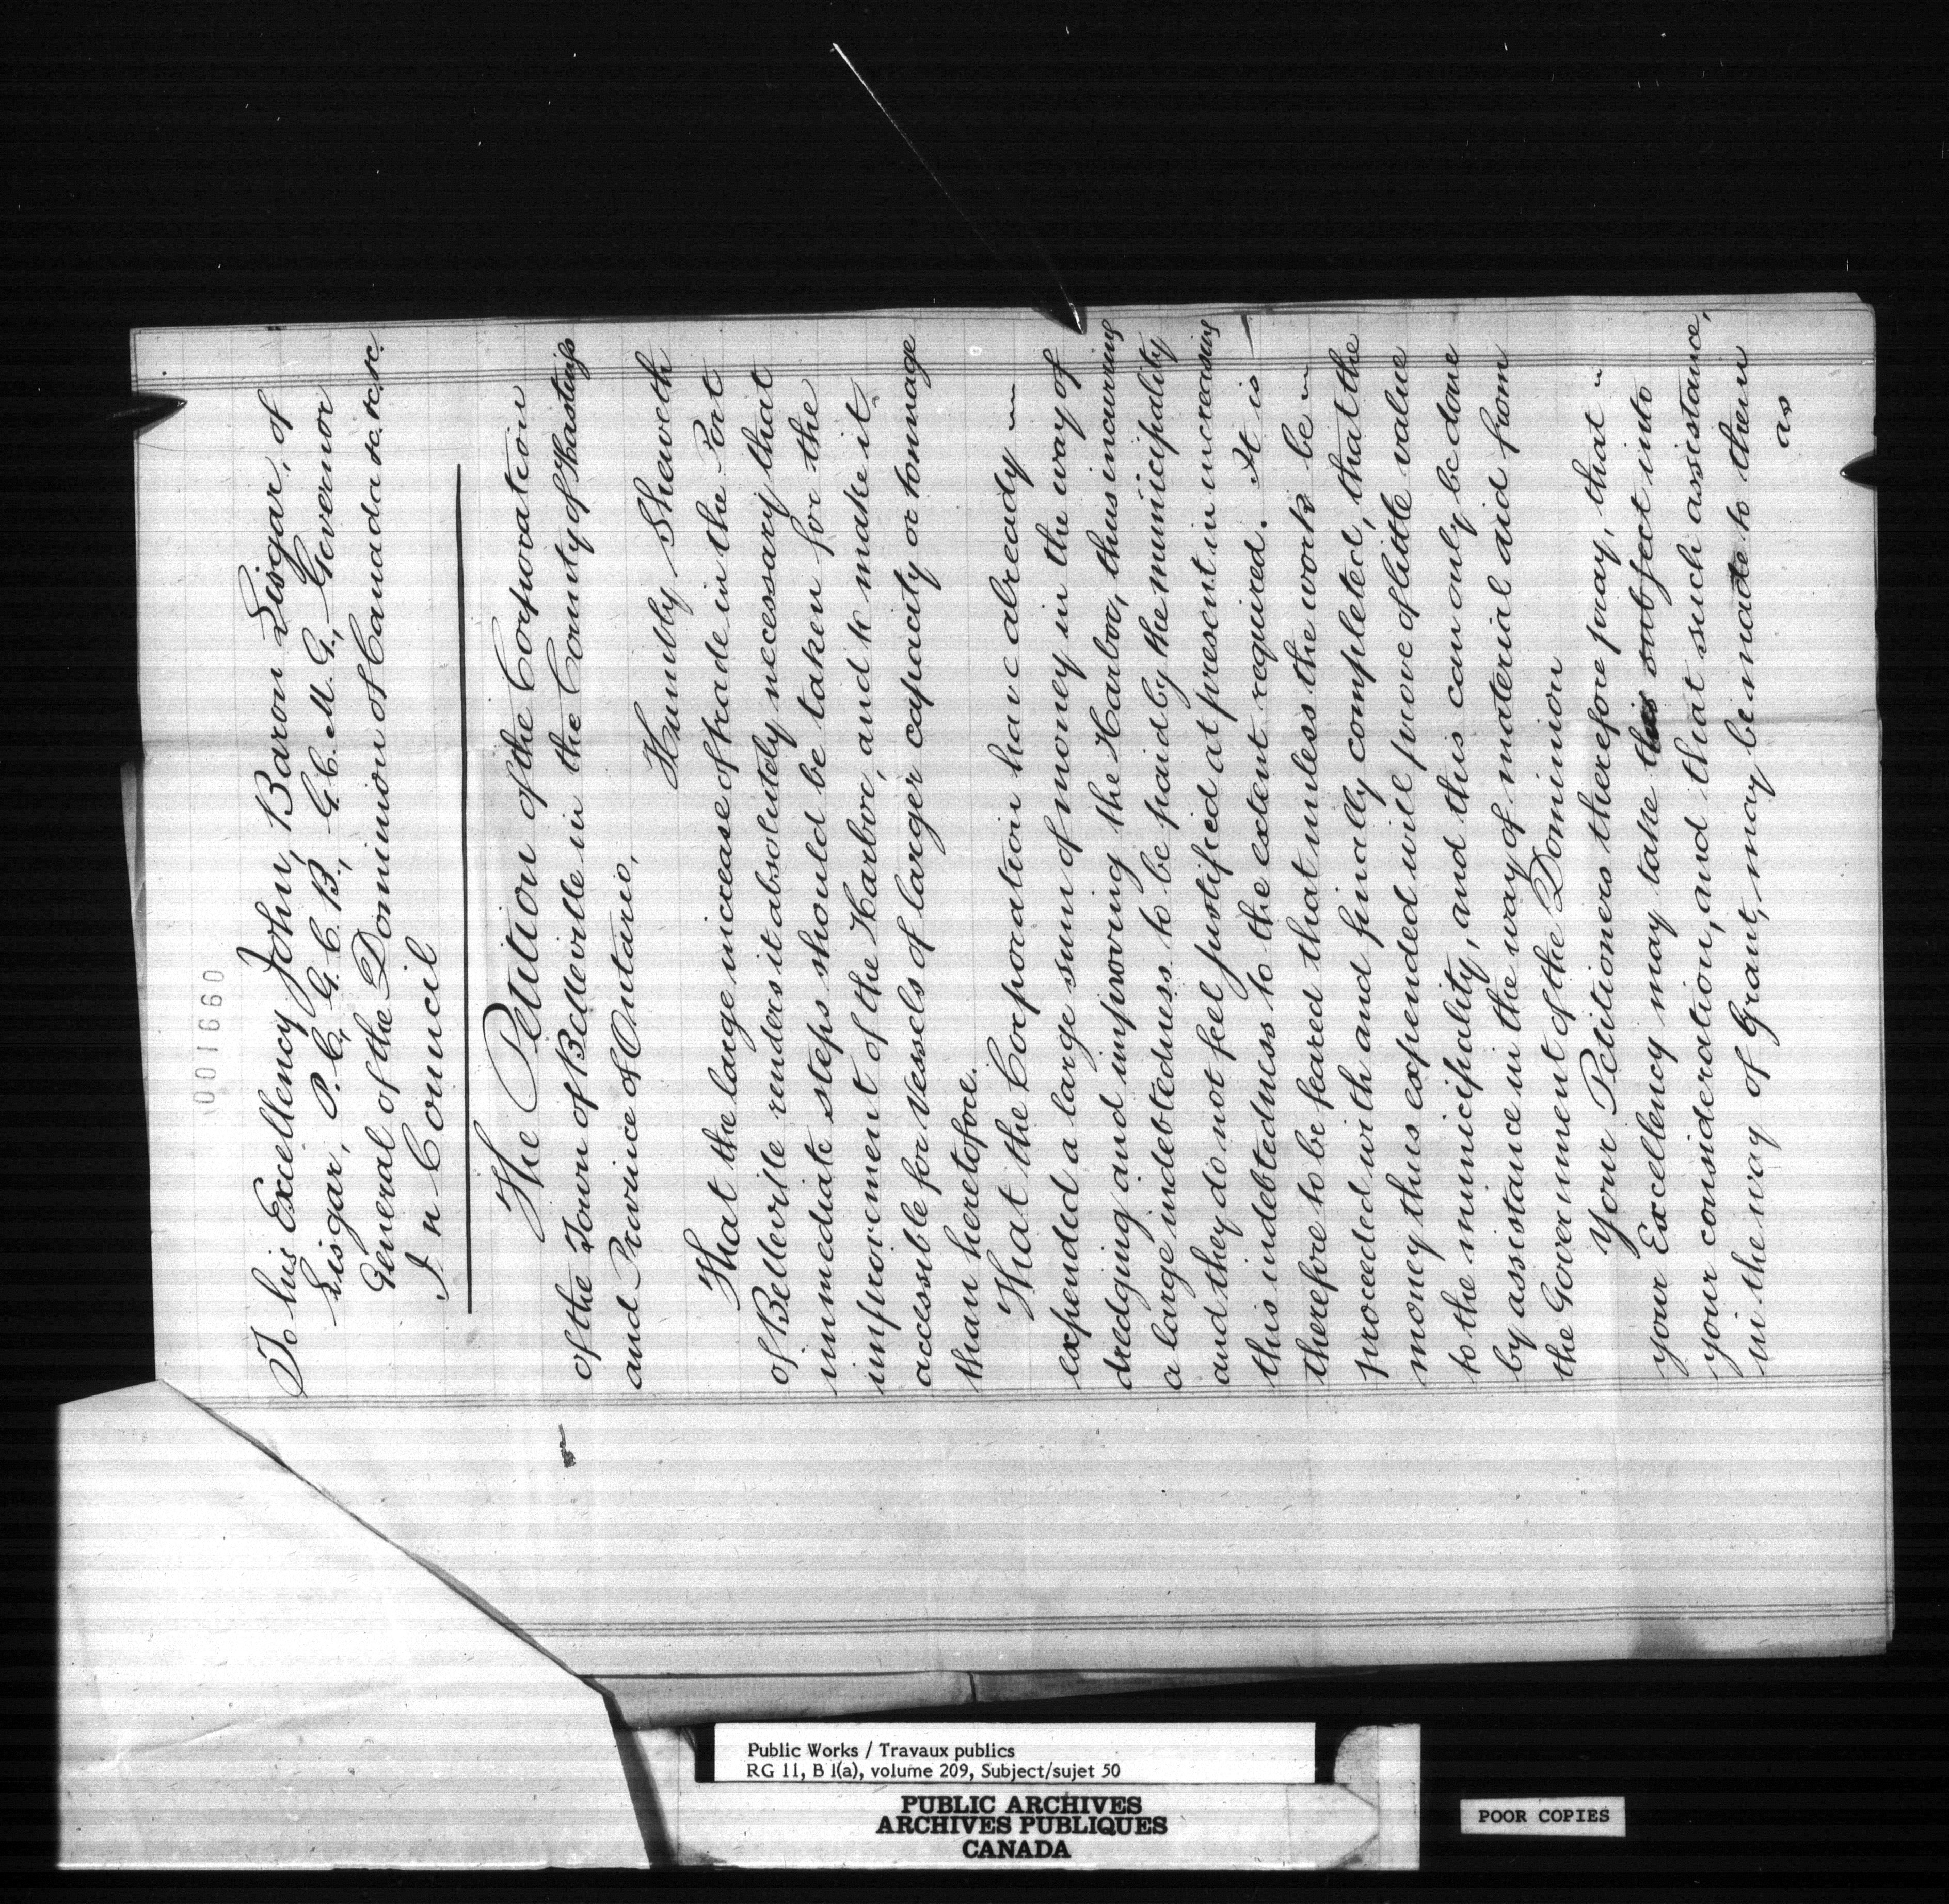 001660
To his Excellency John, Baron Lisgar, of
Lisgar, P.C., G.C.B., G.C.M.G., Governor
General of the Dominion of Canada &c. &c.
In Council
The Petition of the Corporation
of the Town of Belleville in the County of Hastings
and Province of Ontario,
Humbly Sheweth
That the large increase of trade in the Port
of Belleville renders it absolutely necessary that
immediate steps should be taken for the
improvement of the Harbor, and to make it
accessible for Vessels of larger capacity or tonnage
than heretofore.
That the Corporation have already
expended a large sum of money in the way of
dredging and improving the Harbor, thus incurring
a large indebtedness to be paid by the municipality
and they do not feel justified at present in increasing
this indebtedness to the extent required. It is
therefore to be feared that unless the work be
proceeded with and finally completed, that the
money thus expended will prove of little value
to the municipality, and this can only be done
by assistance in the way of material aid from
the Government of the Dominion
Your Petitioners therefore pray, that
your Excellency may take this subject into
your consideration, and that such assistance,
in the way of Grant, may be made to them
as
Public Works / Travaux publics
RG 11, B 1(a), volume 209, Subject/sujet 50
PUBLIC ARCHIVES
ARCHIVES PUBLIQUES
CANADA
POOR COPIES